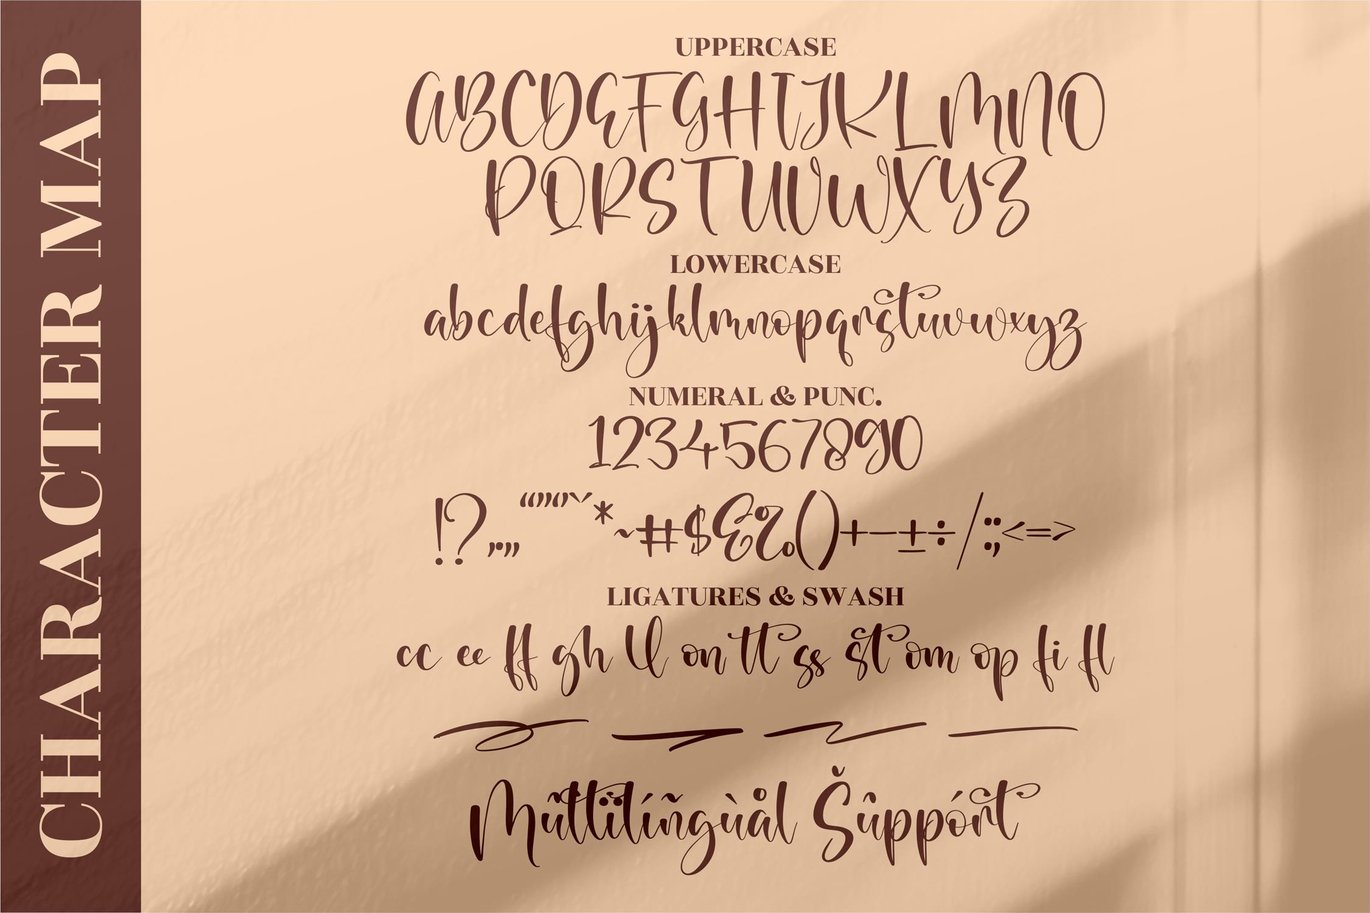 CHARACTER MAP
UPPERCASE
ABCDEFGHIJKLMNO
PQRSTUVWXYZ
LOWERCASE
abcdefghijklmnopqrstuvwxyz
NUMERAL & PUNC.
1234567890
!?.,„“”‘’*~#$&%()+−±÷/:;<=>
LIGATURES & SWASH
cc ee ff gh ll on tt ss st om op fi fl
Mûltïlíñgùål Šûppórt